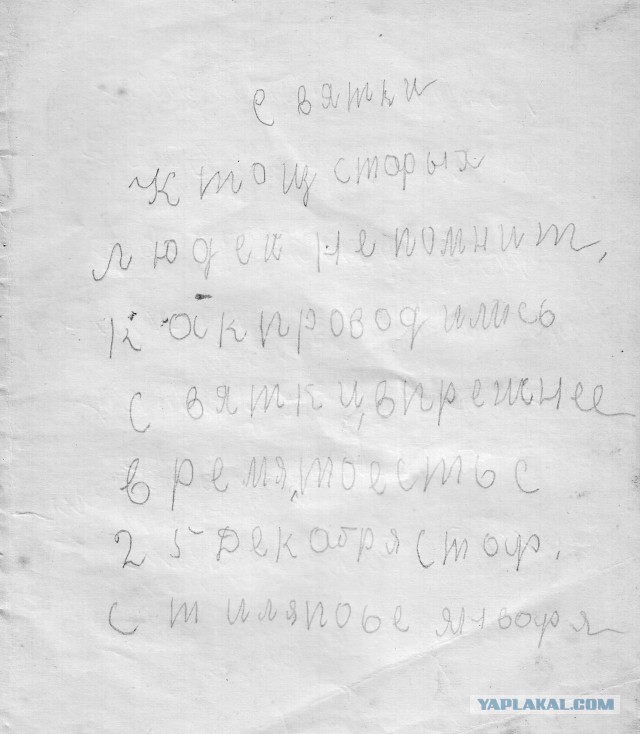 Святки
Кто из старых
людей не помнит,
как проводились
святки, в прежнее
время, то есть с
25 декабря стар.
стиля по 6е января
YAPLAKAL.COM